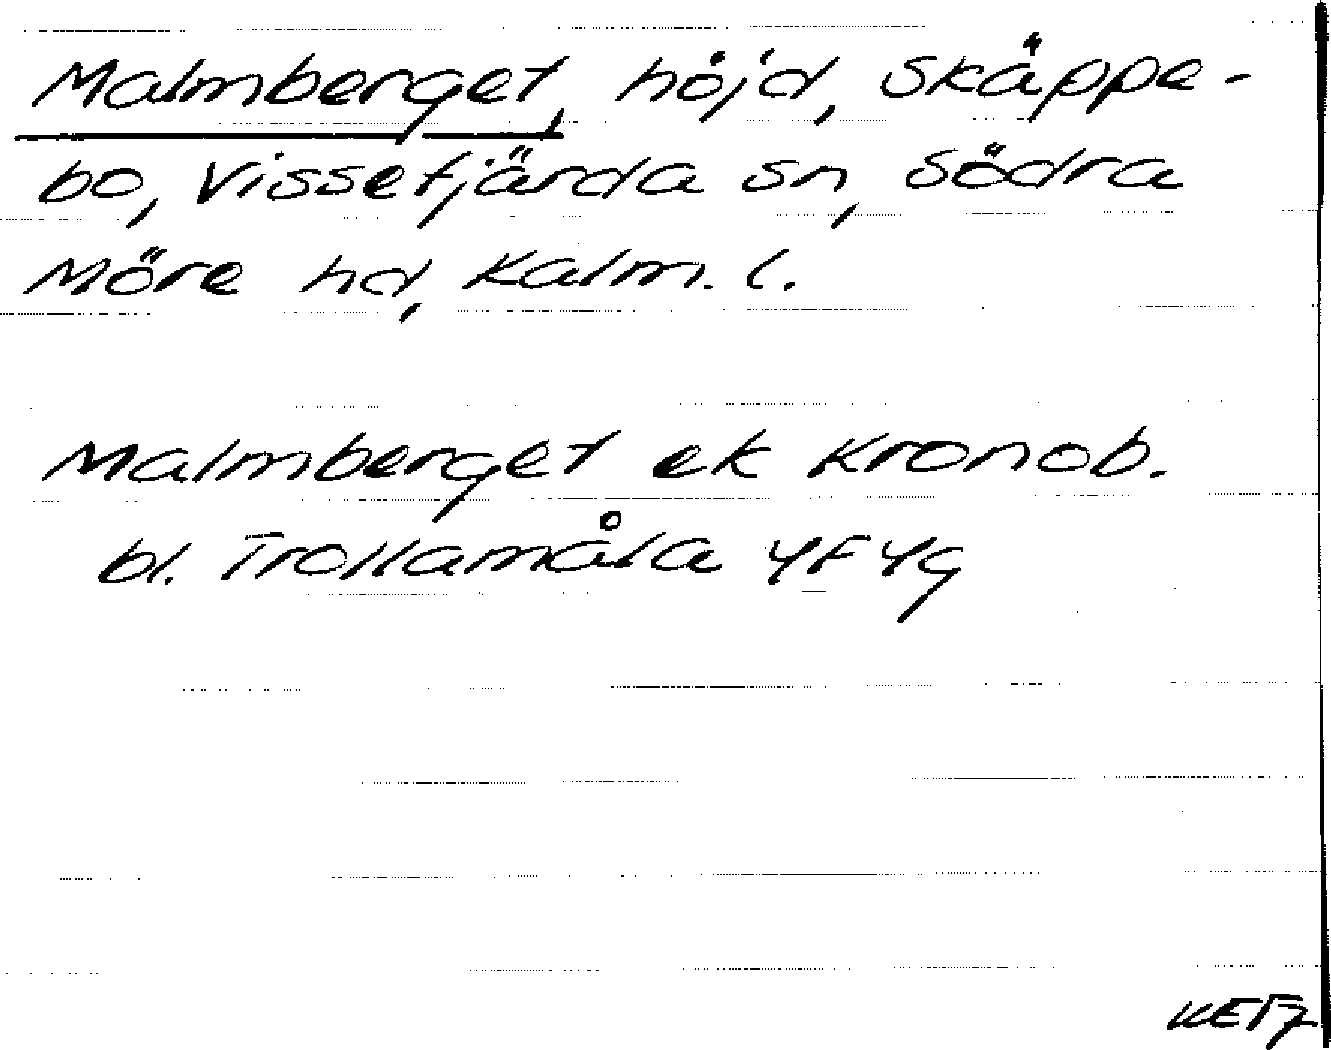 Malmberget, höjd, Skäppe-
bo, Vissefjärda sn, Södra
Möre hd, Kalm. l.
Malmberget ek Kronob.
bl. Trollamåla 4F4g